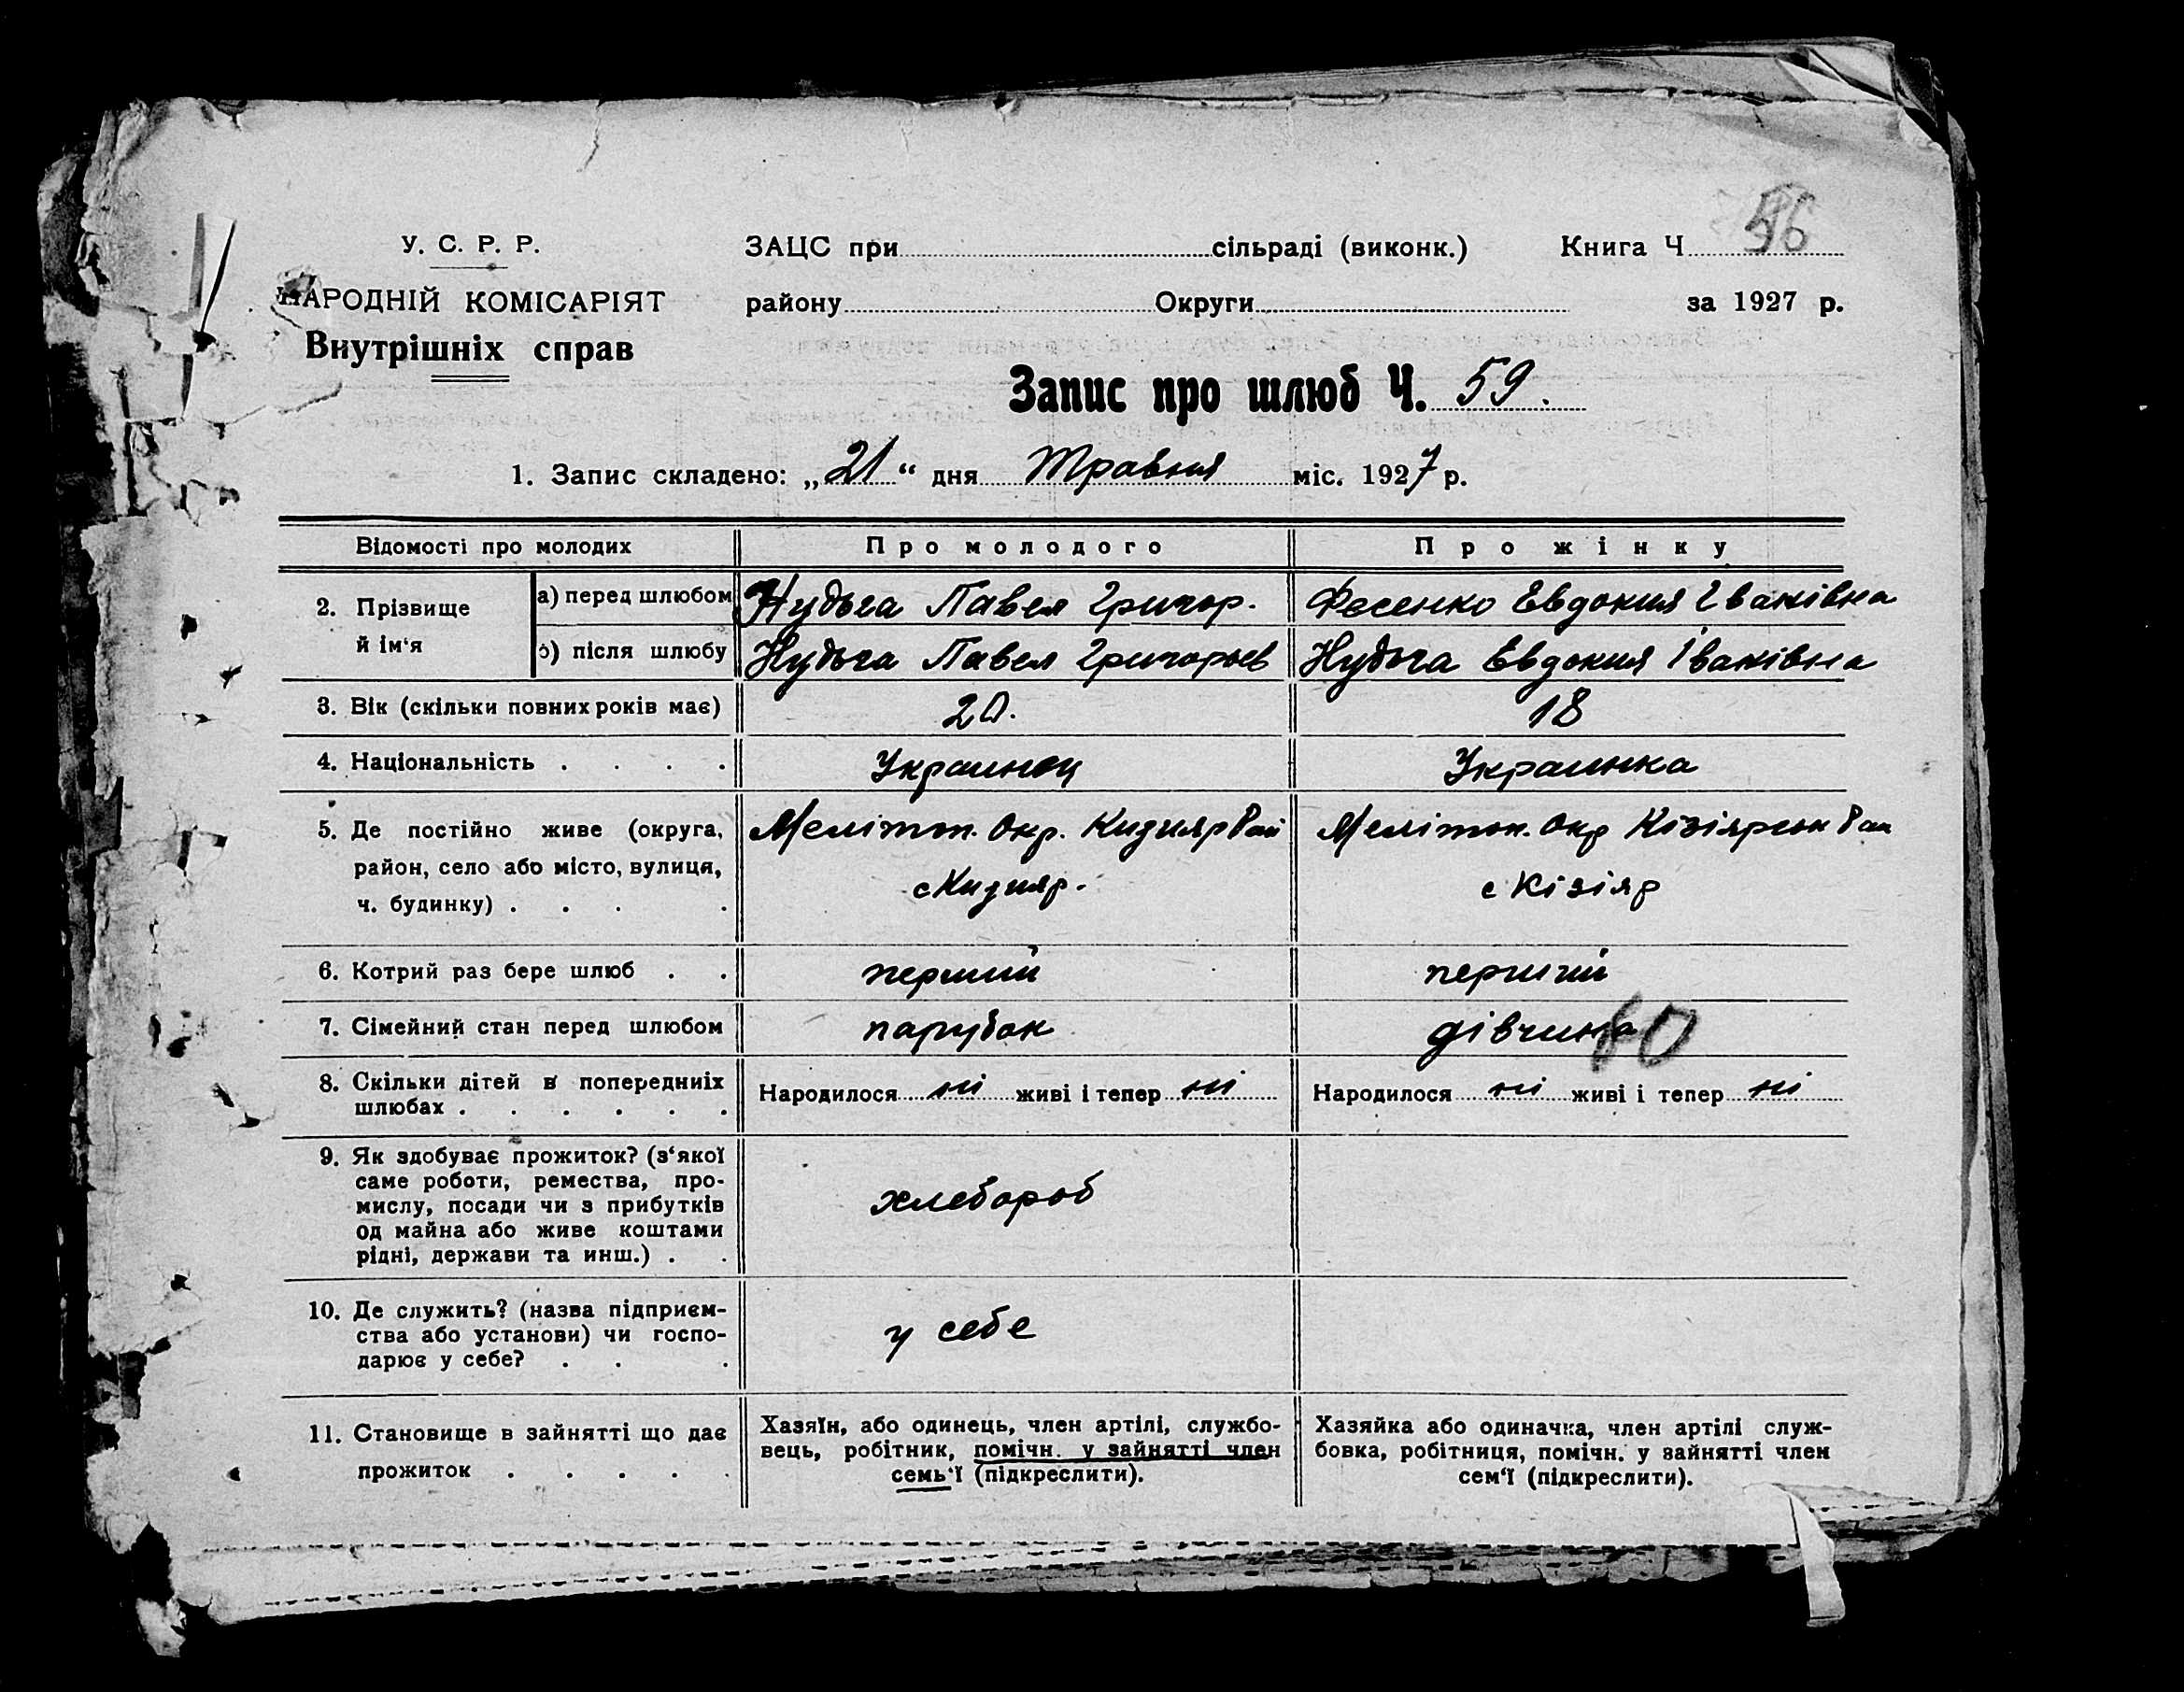 56
У. С. Р. Р.
ЗАЦС при сільраді (виконк.) Книга Ч
НАРОДНІЙ КОМІСАРІЯТ
району Округи за 1927 р.
Внутрішніх справ
Запис про шлюб Ч. 59.
1. Запис складено: „21“ дня Травня міс. 1927 р.
Відомості про молодих Про молодого Про жінку
2. Прізвище й ім‘я
а) перед шлюбом Нудьга Павел Григор. Фесенко Евдокия Іванівна
б) після шлюбу Нудьга Павел Григорьев Нудьга Евдокия Іванівна
3. Вік (скільки повних років має) 20. 18
4. Національність . . . . Украинец Украинка
5. Де постійно живе (округа, Мелітоп. Окр. Кизияр Рай Мелітоп. Окр Кізіярсок Рай
район, село або місто, вулиця, с Кизияр. с Кізіяр
ч. будинку) . . . .
6. Котрий раз бере шлюб . . перший перший
7. Сімейний стан перед шлюбом парубок дівчина
60
8. Скільки дітей в попередниіх Народилося ні живі і тепер ні Народилося ні живі і тепер ні
шлюбах . . . . . .
9. Як здобуває прожиток? (з‘якої
саме роботи, ремества, про-
мислу, посади чи з прибутків хлебороб
од майна або живе коштами
рідні, держави та инш.) . .
10. Де служить? (назва підприєм-
ства або установи) чи госпо- у себе
дарює у себе? . . .
11. Становище в зайнятті що дає
прожиток . . . . .
Хазяїн, або одинець, член артілі, службо-
вець, робітник, помічн. у зайнятті член
семь‘ї (підкреслити).
Хазяйка або одиначка, член артілі служ-
бовка, робітниця, помічн. у зайнятті член
сем‘ї (підкреслити).